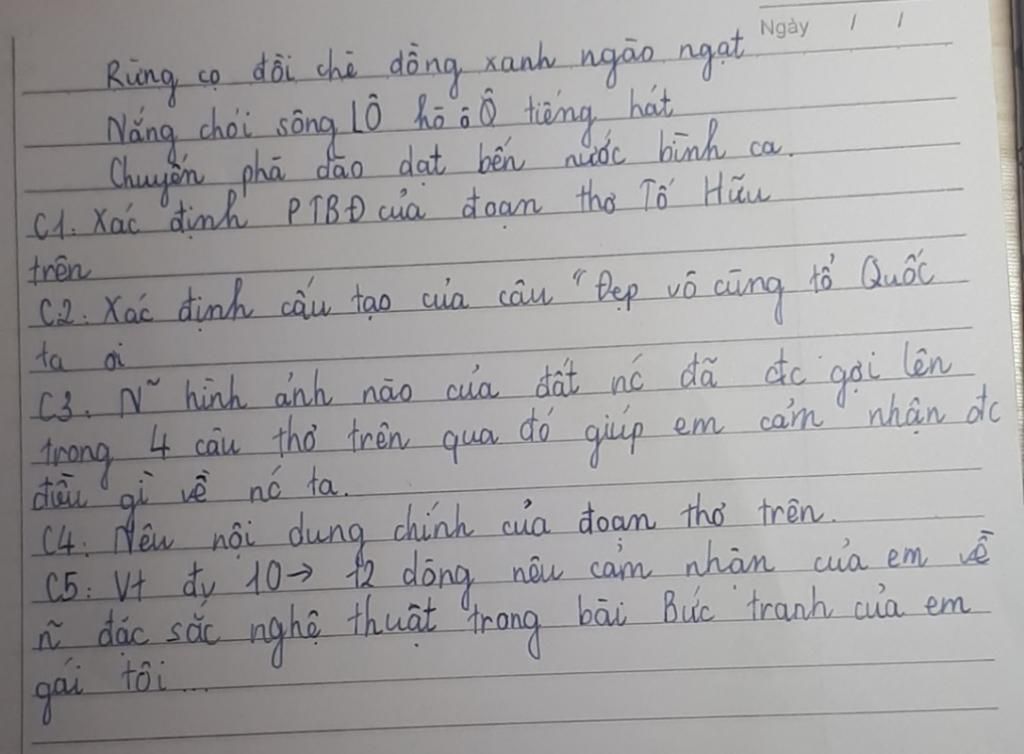 Ngày / /
Rừng cọ đồi chè đồng xanh ngào ngạt
Nắng chói sông LÔ hò ô Ô tiếng hát
Chuyến phà dào dạt bến nước bình ca.
C1. Xác định PTBĐ của đoạn thơ Tố Hữu
trên
C2. Xác định cấu tạo của câu "Đẹp vô cùng tổ Quốc
ta ơi
C3. N~ hình ảnh nào của đất nc đã đc gợi lên
trong 4 câu thơ trên qua đó giúp em cảm nhận đc
điều gì về nc ta.
C4: Nêu nội dung chính của đoạn thơ trên.
C5: Vt đv 10→ 12 dòng nêu cảm nhận của em về
ñ đặc sắc nghệ thuật trong bài Bức tranh của em
gái tôi...